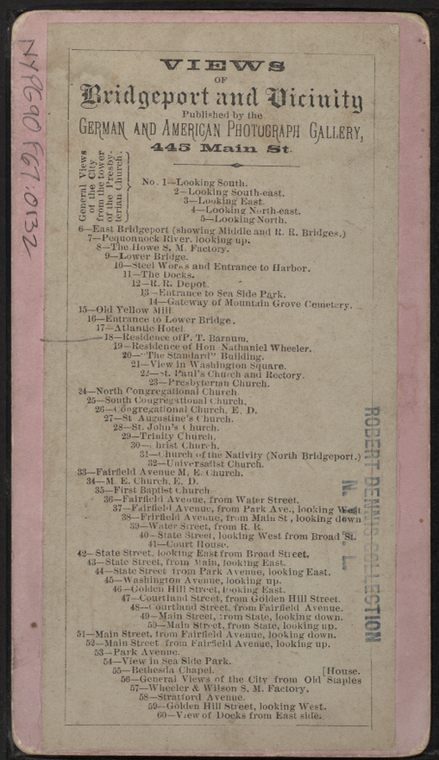 VIEWS
OF
Bridgeport and Vicinity
Published by the
GERMAN AND AMERICAN PHOTOGRAPH GALLERY,
445 Main St.
General Views
of the City
from the tower
of the Presby-
terian Church.
No. 1—Looking South.
2—Looking South-east.
3—Looking East.
4—Looking North-east.
5—Looking North.
6—East Bridgeport (showing Middle and R. R. Bridges.)
7—Pequonnock River, looking up.
8—The Howe S. M. Factory.
9—Lower Bridge.
10—Steel Works and Entrance to Harbor.
11—The Docks.
12—R. R. Depot.
13—Entrance to Sea Side Park.
14—Gateway of Mountain Grove Cemetery.
15—Old Yellow Mill
16—Entrance to Lower Bridge.
17—Atlantic Hotel.
18—Residence of P. T. Barnum.
19—Residence of Hon. Nathaniel Wheeler.
20—"The Standard" Building.
21—View in Washington Square.
22—St. Paul's Church and Rectory.
23—Presbyterian Church.
24—North Congregational Church
25—South Congregational Church.
26—Congregational Church, E. D.
27—St. Augustine's Church.
28—St. John's Church.
29—Trinity Church.
30—Christ Church.
31—Church of the Nativity (North Bridgeport.)
32—Universalist Church.
33—Fairfield Avenue M. E. Church.
34—M. E. Church, E. D.
35—First Baptist Church
36—Fairfield Avenue, from Water Street.
37—Fairfield Avenue, from Park Ave., looking West
38—Fairfield Avenue, from Main St, looking down
39—Water Street, from R. R.
40—State Street, looking West from Broad St.
41—Court House.
42—State Street, looking East from Broad Street.
43—State Street, from Main, looking East.
44—State Street from Park Avenue, looking East.
45—Washington Avenue, looking up.
46—Golden Hill Street, looking East.
47—Courtland Street, from Golden Hill Street.
48—Courtland Street, from Fairfield Avenue.
49—Main Street, from State, looking down.
50—Main Street, from State, looking up.
51—Main Street, from Fairfield Avenue, looking down.
52—Main Street from Fairfield Avenue, looking up.
53—Park Avenue.
54—View in Sea Side Park.
55—Bethesda Chapel. [House.
56—General Views of the City from Old Staples
57—Wheeler & Wilson S. M. Factory.
58—Stratford Avenue.
59—Golden Hill Street, looking West.
60—View of Docks from East side.
ROBERT DENNIS COLLECTION
N. L.
NYPG90 F67:0132